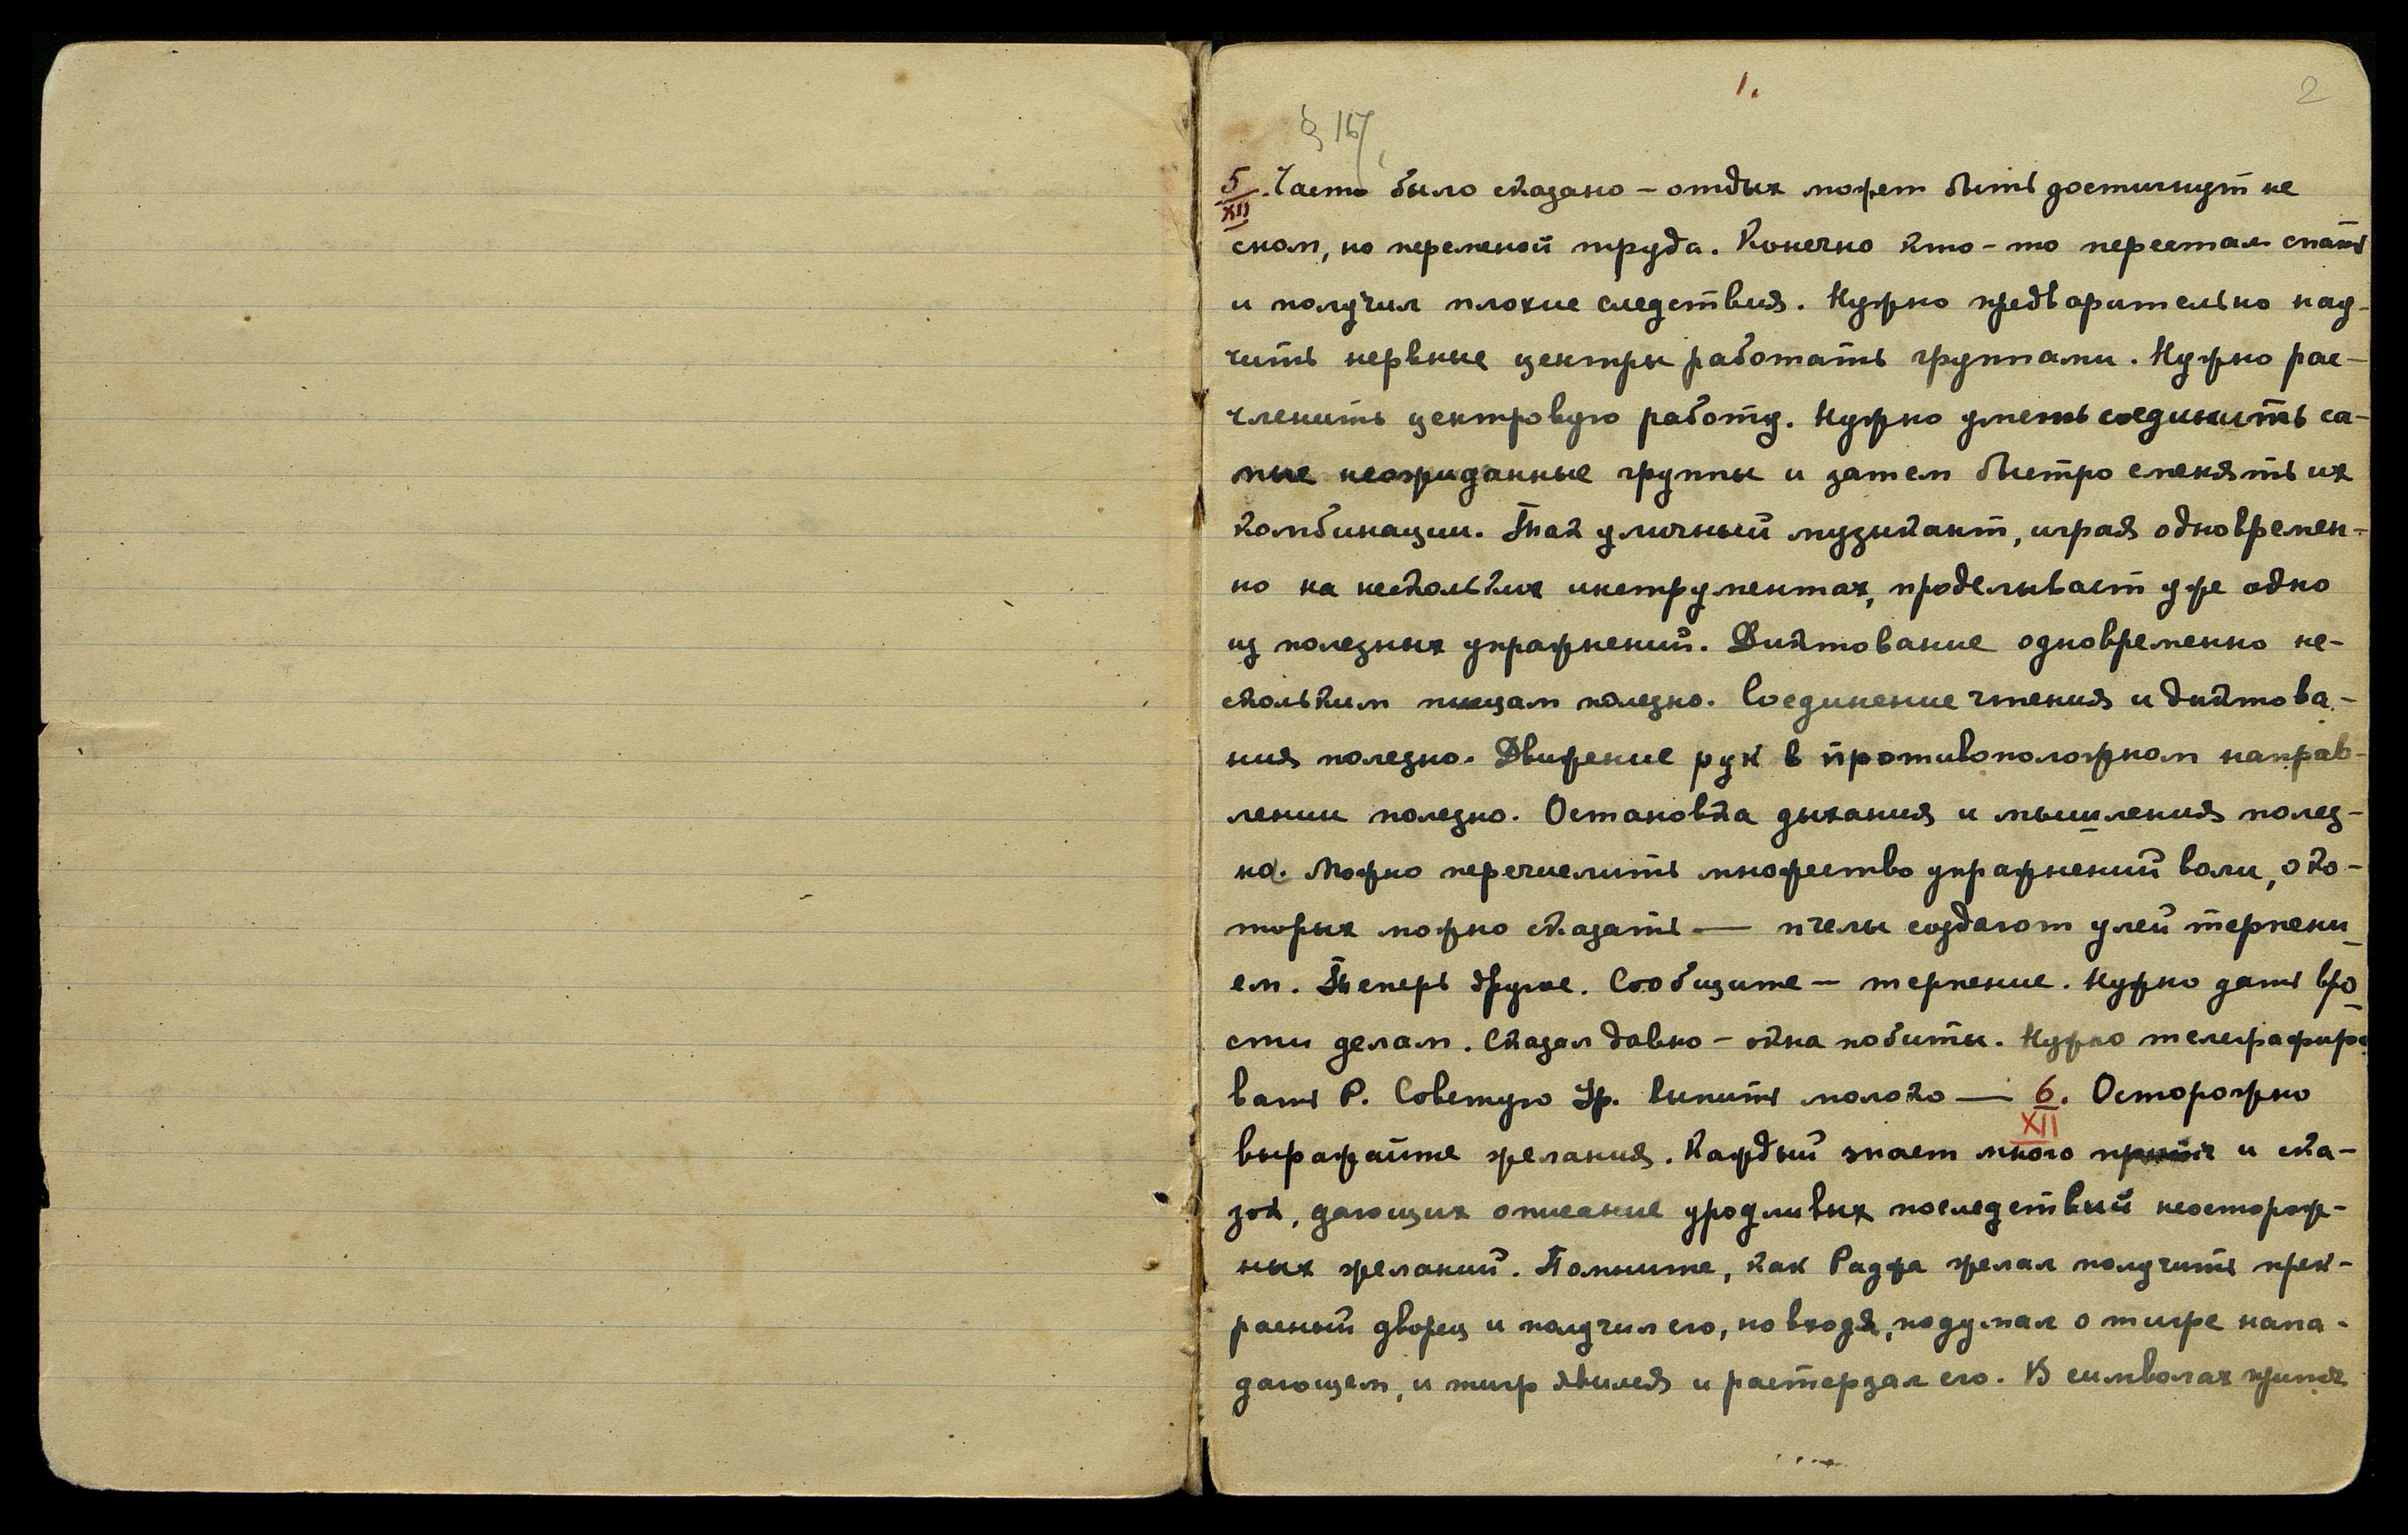 1.
2
§ 167,
5/XII. Часто было сказано – отдых может быть достигнут не
сном, но переменой труда. Конечно кто-то перестал спать
и получил плохие следствия. Нужно предварительно нау-
чить нервные центры работать группами. Нужно рас-
членить центровую работу. Нужно уметь соединить са-
мые неожиданные группы и затем быстро сменять их
комбинации. Так уличный музыкант, играя одновремен-
но на нескольких инструментах, проделывает уже одно
из полезных упражнений. Диктование одновременно не-
скольким писцам полезно. Соединение чтения и диктова-
ния полезно. Движение рук в противоположном направ-
лении полезно. Остановка дыхания и мышления полез-
но. Можно перечислить множество упражнений воли, о ко-
торых можно сказать — пчелы создают улей терпени-
ем. Теперь другое. Сообщите – терпение. Нужно дать вро-
сти делам. Сказал давно – окна побиты. Нужно телеграфиро
вать Р. Советую Ур. выпить молоко — 6/XII. Осторожно
выражайте желания. Каждый знает много притч и ска-
зок, дающих описание уродливых последствий неосторож-
ных желаний. Помните, как Раджа желал получить прек-
расный дворец и получил его, но входя, подумал о тигре напа-
дающем, и тигр явился и растерзал его. В символах притч